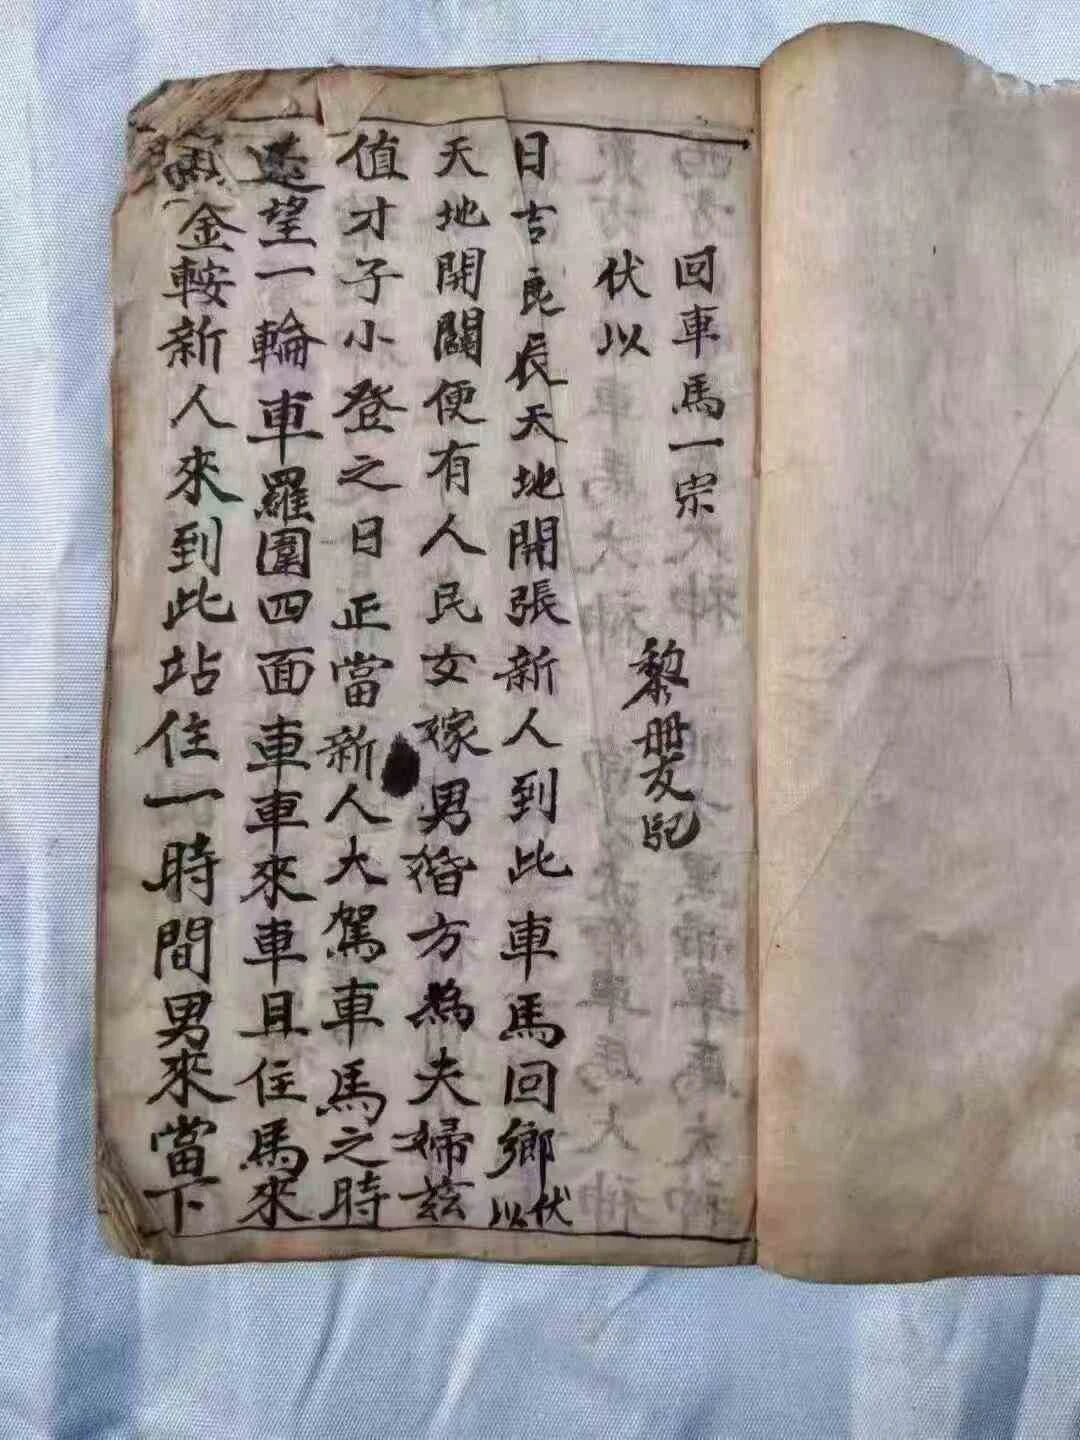 回車馬一宗
伏以
黎册友記
日吉良辰天地開張新人到此車馬回鄉伏以
天地開闢便有人民女嫁男婚方為夫婦茲
值才子小登之日正當新人大駕車馬之時
遠望一輪車羅圍四面車車來車且住馬來
金鞍新人來到此站住一時間男來當下